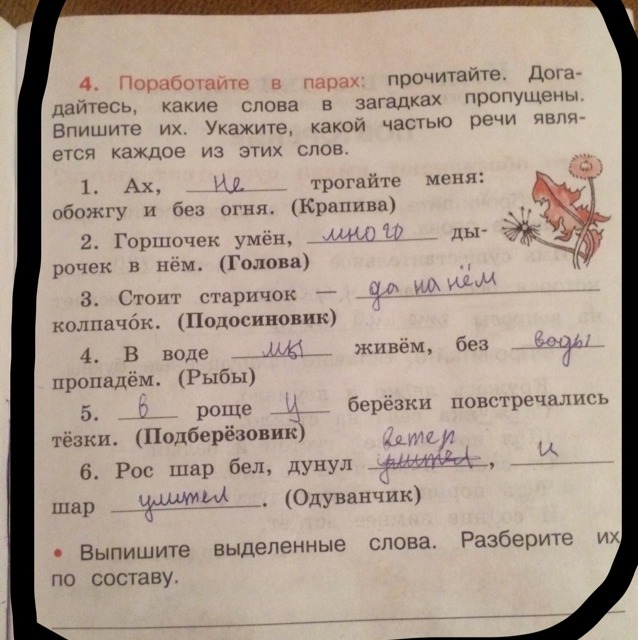 4. Поработайте в парах: прочитайте. Дога-
дайтесь, какие слова в загадках пропущены.
Впишите их. Укажите, какой частью речи явля-
ется каждое из этих слов.
1. Ах, не трогайте меня:
обожгу и без огня. (Крапива)
2. Горшочек умён, много ды-
рочек в нём. (Голова)
3. Стоит старичок да на нём
колпачо́к. (Подосиновик)
4. В воде мы живём, без воды
пропадём. (Рыбы)
5. в роще у берёзки повстречались
тёзки. (Подберёзовик)
ветер
6. Рос шар бел, дунул улител, и
шар улител. (Одуванчик)
• Выпишите выделенные слова. Разберите их
по составу.